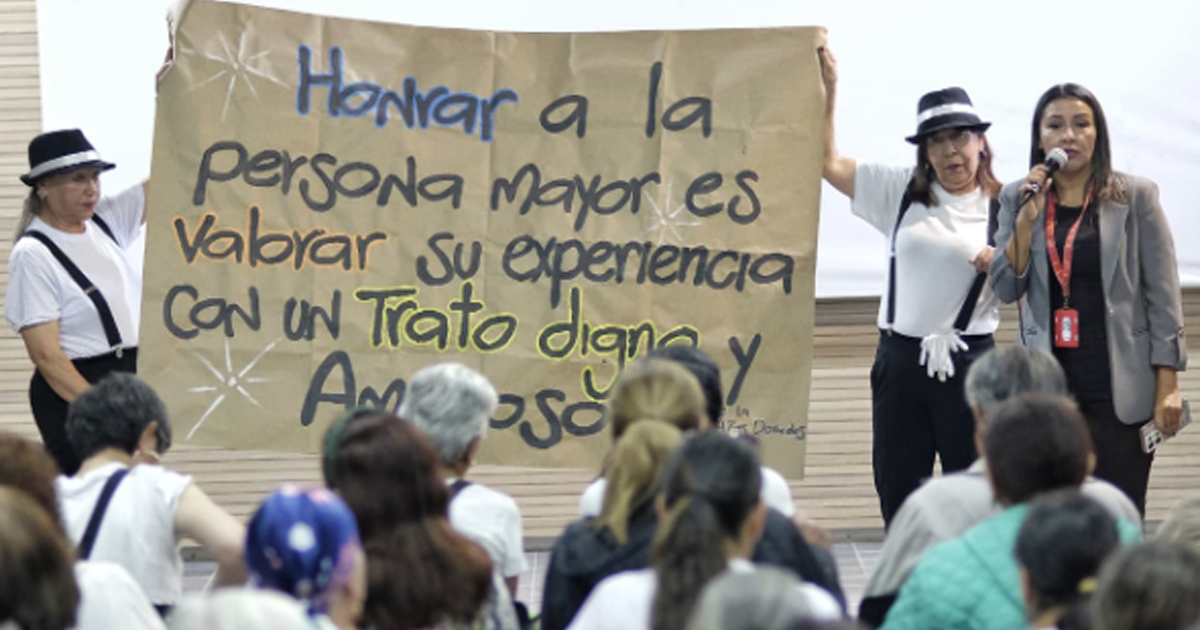 Honrar a la
persona mayor es
Valorar su experiencia
con un Trato digno y
Am oso
la